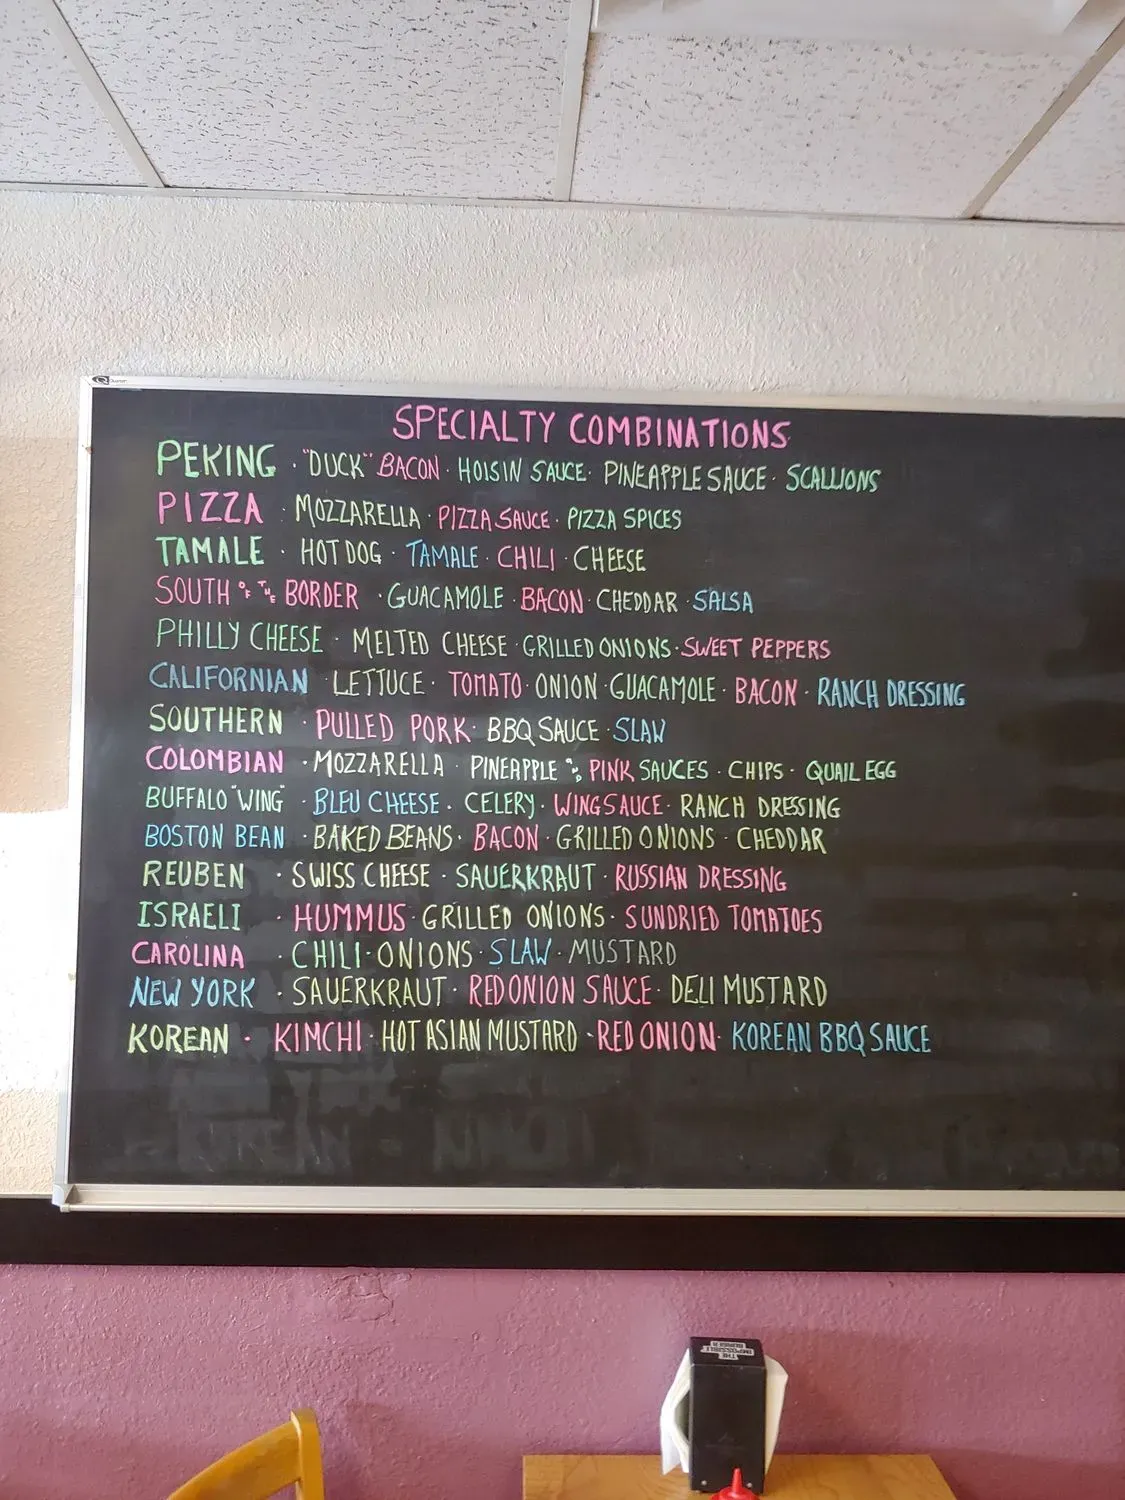 Quartet
SPECIALTY COMBINATIONS
PEKING · "DUCK" BACON · HOISIN SAUCE · PINEAPPLE SAUCE · SCALLIONS
PIZZA · MOZZARELLA · PIZZA SAUCE · PIZZA SPICES
TAMALE · HOT DOG · TAMALE · CHILI · CHEESE
SOUTH OF THE BORDER · GUACAMOLE · BACON · CHEDDAR · SALSA
PHILLY CHEESE · MELTED CHEESE · GRILLED ONIONS · SWEET PEPPERS
CALIFORNIAN · LETTUCE · TOMATO · ONION · GUACAMOLE · BACON · RANCH DRESSING
SOUTHERN · PULLED PORK · BBQ SAUCE · SLAW
COLOMBIAN · MOZZARELLA · PINEAPPLE & PINK SAUCES · CHIPS · QUAIL EGG
BUFFALO "WING" · BLEU CHEESE · CELERY · WING SAUCE · RANCH DRESSING
BOSTON BEAN · BAKED BEANS · BACON · GRILLED ONIONS · CHEDDAR
REUBEN · SWISS CHEESE · SAUERKRAUT · RUSSIAN DRESSING
ISRAELI · HUMMUS · GRILLED ONIONS · SUNDRIED TOMATOES
CAROLINA · CHILI · ONIONS · SLAW · MUSTARD
NEW YORK · SAUERKRAUT · RED ONION SAUCE · DELI MUSTARD
KOREAN · KIMCHI · HOT ASIAN MUSTARD · RED ONION · KOREAN BBQ SAUCE
THE
IMPOSSIBLE